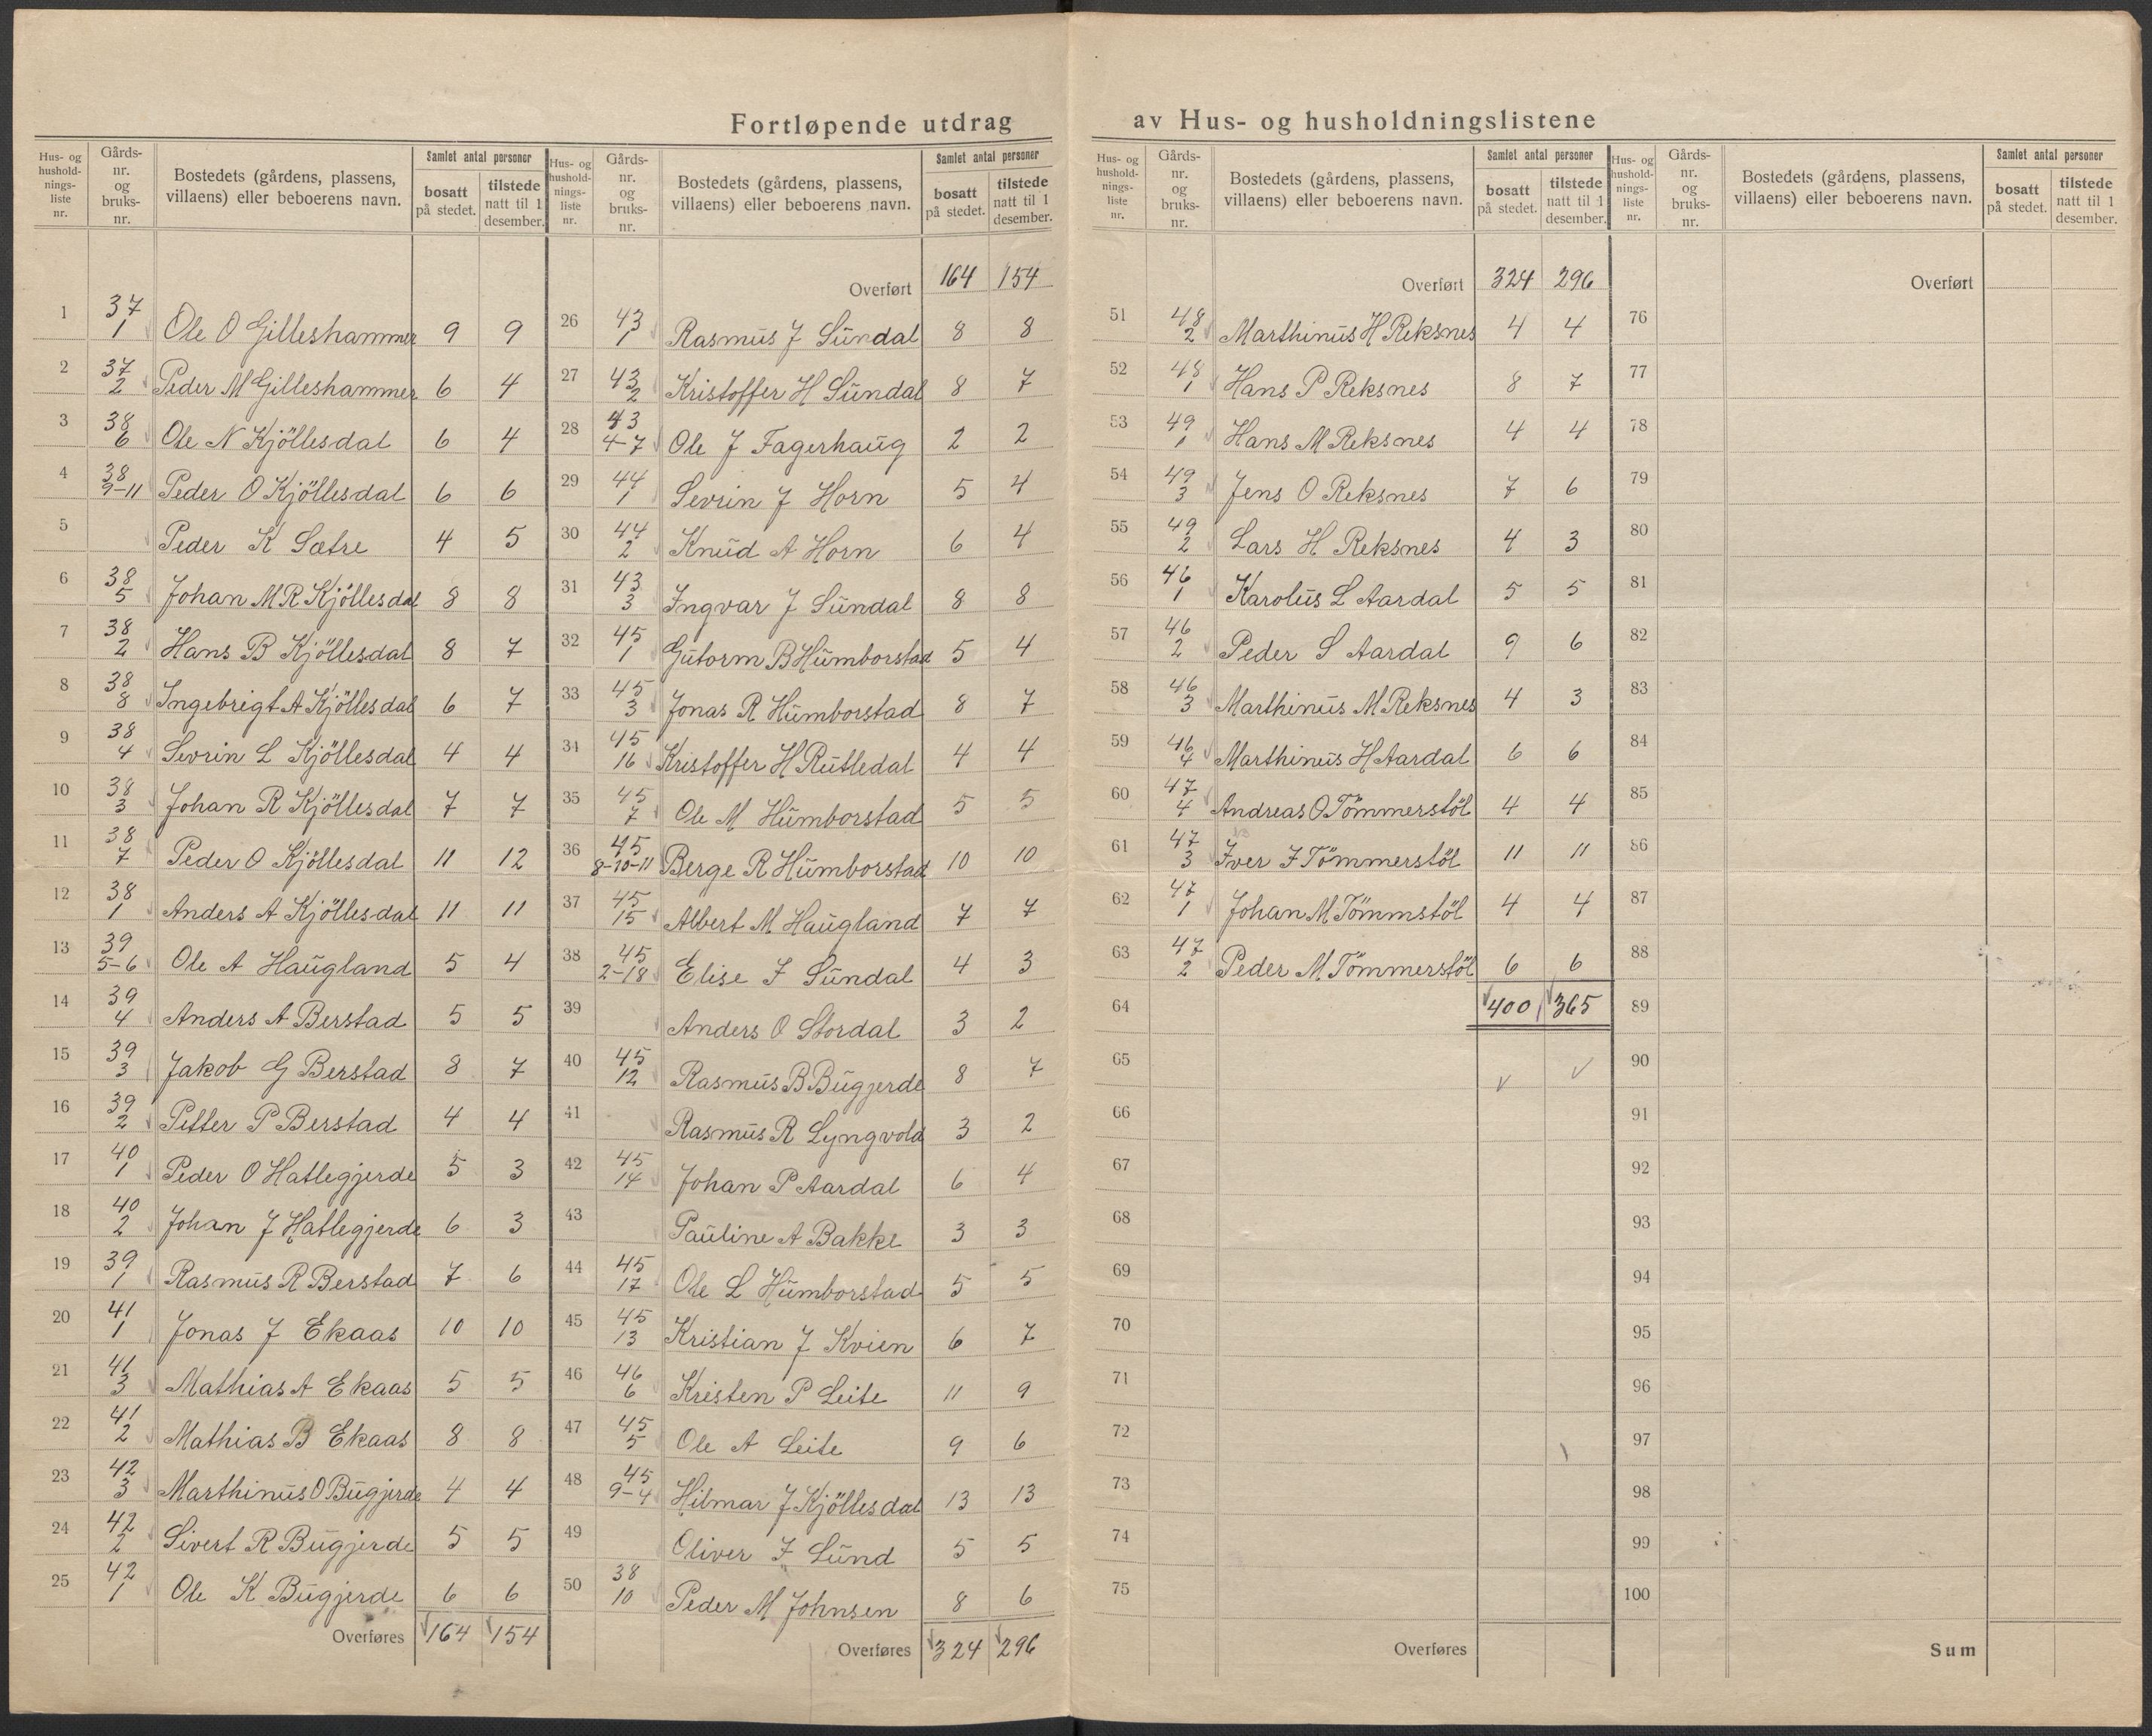 Fortløpende utdrag av Hus- og husholdningslistene
Hus- og husholdnings- liste nr. Gårds- nr. og bruks- nr. Bostedets (gårdens, plassens, villaens) eller beboerens navn. Samlet antal personer bosatt på stedet. tilstede natt til 1 desember.
1 37 1 Ole O Gilleshammer 9 9
2 37 2 Peder M Gilleshammer 6 4
3 38 6 Ole N Kjöllesdal 6 4
4 38 9-11 Peder O Kjöllesdal 6 6
5 Peder K Sætre 4 5
6 38 5 Johan M R Kjöllesdal 8 8
7 38 2 Hans B Kjöllesdal 8 7
8 38 8 Ingebrigt A Kjöllesdal 6 7
9 38 4 Sevrin L Kjöllesdal 4 4
10 38 3 Johan R Kjöllesdal 7 7
11 38 7 Peder O Kjöllesdal 11 12
12 38 1 Anders A Kjöllesdal 11 11
13 39 5-6 Ole A Haugland 5 4
14 39 4 Anders A Berstad 5 5
15 39 3 Jakob G Berstad 8 7
16 39 2 Petter P Berstad 4 4
17 40 1 Peder O Hatlegjerde 5 3
18 40 2 Johan J Hatlegjerde 6 3
19 39 1 Rasmus R Berstad 7 6
20 41 1 Jonas J Ekaas 10 10
21 41 3 Mathias A Ekaas 5 5
22 41 2 Mathias B Ekaas 8 8
23 42 3 Marthinus O Bugjerde 4 4
24 42 2 Sivert R Bugjerde 5 5
25 42 1 Ole K Bugjerde 6 6
Overføres 164 154
Hus- og husholdnings- liste nr. Gårds- nr. og bruks- nr. Bostedets (gårdens, plassens, villaens) eller beboerens navn. Samlet antal personer bosatt på stedet. tilstede natt til 1 desember.
Overført 164 154
26 43 1 Rasmus J Sundal 8 8
27 43 2 Kristoffer H Sundal 8 7
28 43 4-7 Ole J Fagerhaug 2 2
29 44 1 Sevrin J Horn 5 4
30 44 2 Knud A Horn 6 4
31 43 3 Ingvar J Sundal 8 8
32 45 1 Gutorm B Humborstad 5 4
33 45 3 Jonas R Humborstad 8 7
34 45 16 Kristoffer H Rutledal 4 4
35 45 7 Ole M Humborstad 5 5
36 45 8-10-11 Berge R Humborstad 10 10
37 45 15 Albert M Haugland 7 7
38 45 2-18 Elise J Sundal 4 3
39 Anders O Stordal 3 2
40 45 12 Rasmus B Bugjerde 8 7
41 Rasmus R Lyngvold 3 2
42 45 14 Johan P Aardal 6 4
43 Pauline A Bakke 3 3
44 45 17 Ole L Humborstad 5 5
45 45 13 Kristian J Kvien 6 7
46 46 6 Kristen P Leite 11 9
47 45 5 Ole A Leite 9 6
48 45 9-4 Hilmar J Kjöllesdal 13 13
49 Oliver J Lund 5 5
50 38 10 Peder M Johnsen 8 6
Overføres 324 296
Hus- og husholdnings- liste nr. Gårds- nr. og bruks- nr. Bostedets (gårdens, plassens, villaens) eller beboerens navn. Samlet antal personer bosatt på stedet. tilstede natt til 1 desember.
Overført 324 296
51 48 2 Marthinus H Reksnes 4 4
52 48 1 Hans P Reksnes 8 7
53 49 1 Hans M Reksnes 4 4
54 49 3 Jens O Reksnes 7 6
55 49 2 Lars H Reksnes 4 3
56 46 1 Karolus L Aardal 5 5
57 46 2 Peder S Aardal 9 6
58 46 3 Marthinus M Reksnes 4 3
59 46 4 Marthinus H Aardal 6 6
60 47 4 Andreas O Tömmerstöl 4 4
61 47 3 Iver J Tömmerstöl 11 11
62 47 1 Johan M Tömmstöl 4 4
63 47 2 Peder M Tömmerstöl 6 6
64 400 365
65
66
67
68
69
70
71
72
73
74
75
Overføres
Hus- og husholdnings- liste nr. Gårds- nr. og bruks- nr. Bostedets (gårdens, plassens, villaens) eller beboerens navn. Samlet antal personer bosatt på stedet. tilstede natt til 1 desember.
Overført
76
77
78
79
80
81
82
83
84
85
86
87
88
89
90
91
92
93
94
95
96
97
98
99
100
Sum